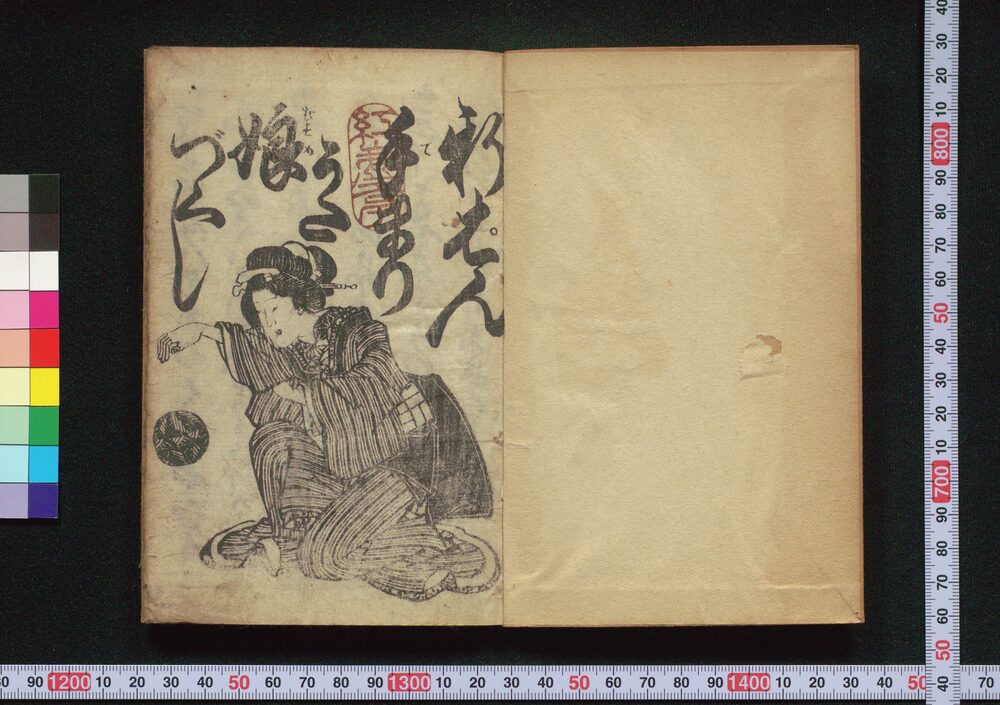 新ぱん
手まり
て
うた
娘
むすめ
づくし
40 30 20 10 800 90 80 70 60 50 40 30 20 10 700 90 80 70 60 50 40
90 1200 10 20 30 40 50 60 70 80 90 1300 10 20 30 40 50 60 70 80 90 1400 10 20 30 40 70